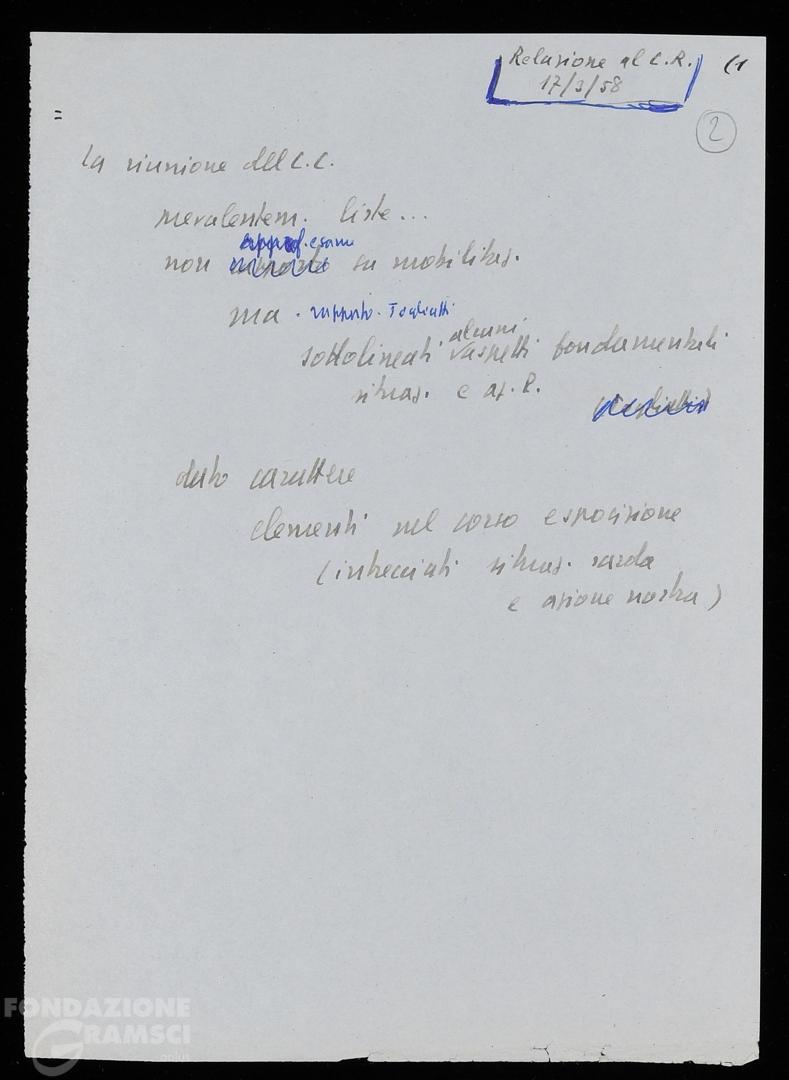 Relazione al C.R. (1
17/3/58
2
=
La riunione del C.C.
prevalentem. liste...
approf. esame
non su mobilitaz.
ma . rapporto . Togliatti
alcuni
sottolineati aspetti fondamentali
situaz. e az. P.
dato carattere
elementi nel corso esposizione
(intrecciati situaz. sarda
e azione nostra)
FONDAZIONE
GRAMSCI
onlus